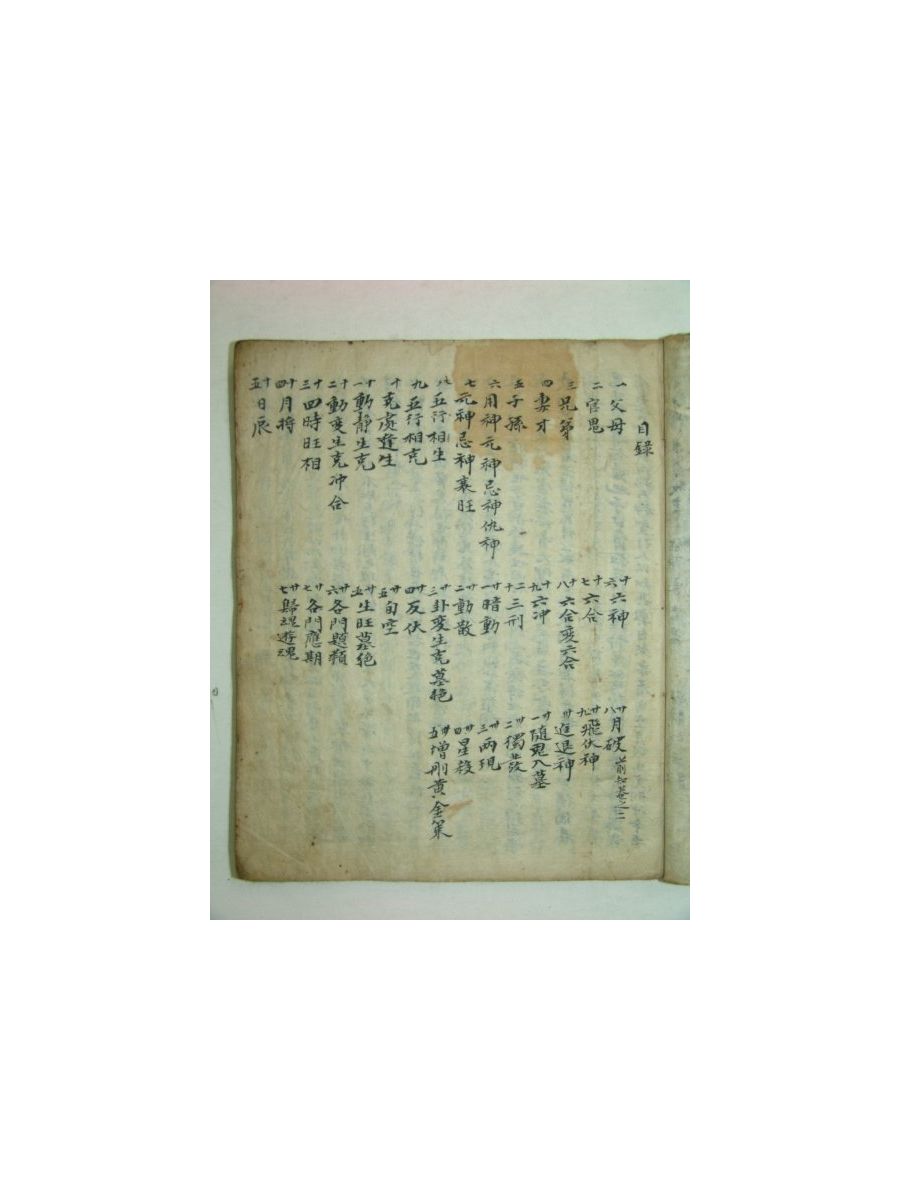 目錄
一 父母
二 官鬼
三 兄弟
四 妻才
五 子孫
六 用神元神忌神仇神
七 元神忌神衰旺
八 五行相生
九 五行相克
十 克處逢生
十一 動靜生克
十二 動変生克冲合
十三 四時旺相
十四 月将
十五 日辰
十六 六神
十七 六合
十八 六合変六合
十九 六冲
二十 三刑
廿一 暗動
廿二 動散
廿三 卦変生克墓絶
廿四 反伏
廿五 旬空
廿五 生旺墓絶
廿六 各門題頪
廿七 各門應期
廿七 歸魂遊魂
廿八 月破
廿九 飛伏神
卅 進退神
卅一 隨鬼入墓
卅二 獨發
卅三 兩現
卅四 星殺
卅五 增刪黃金策